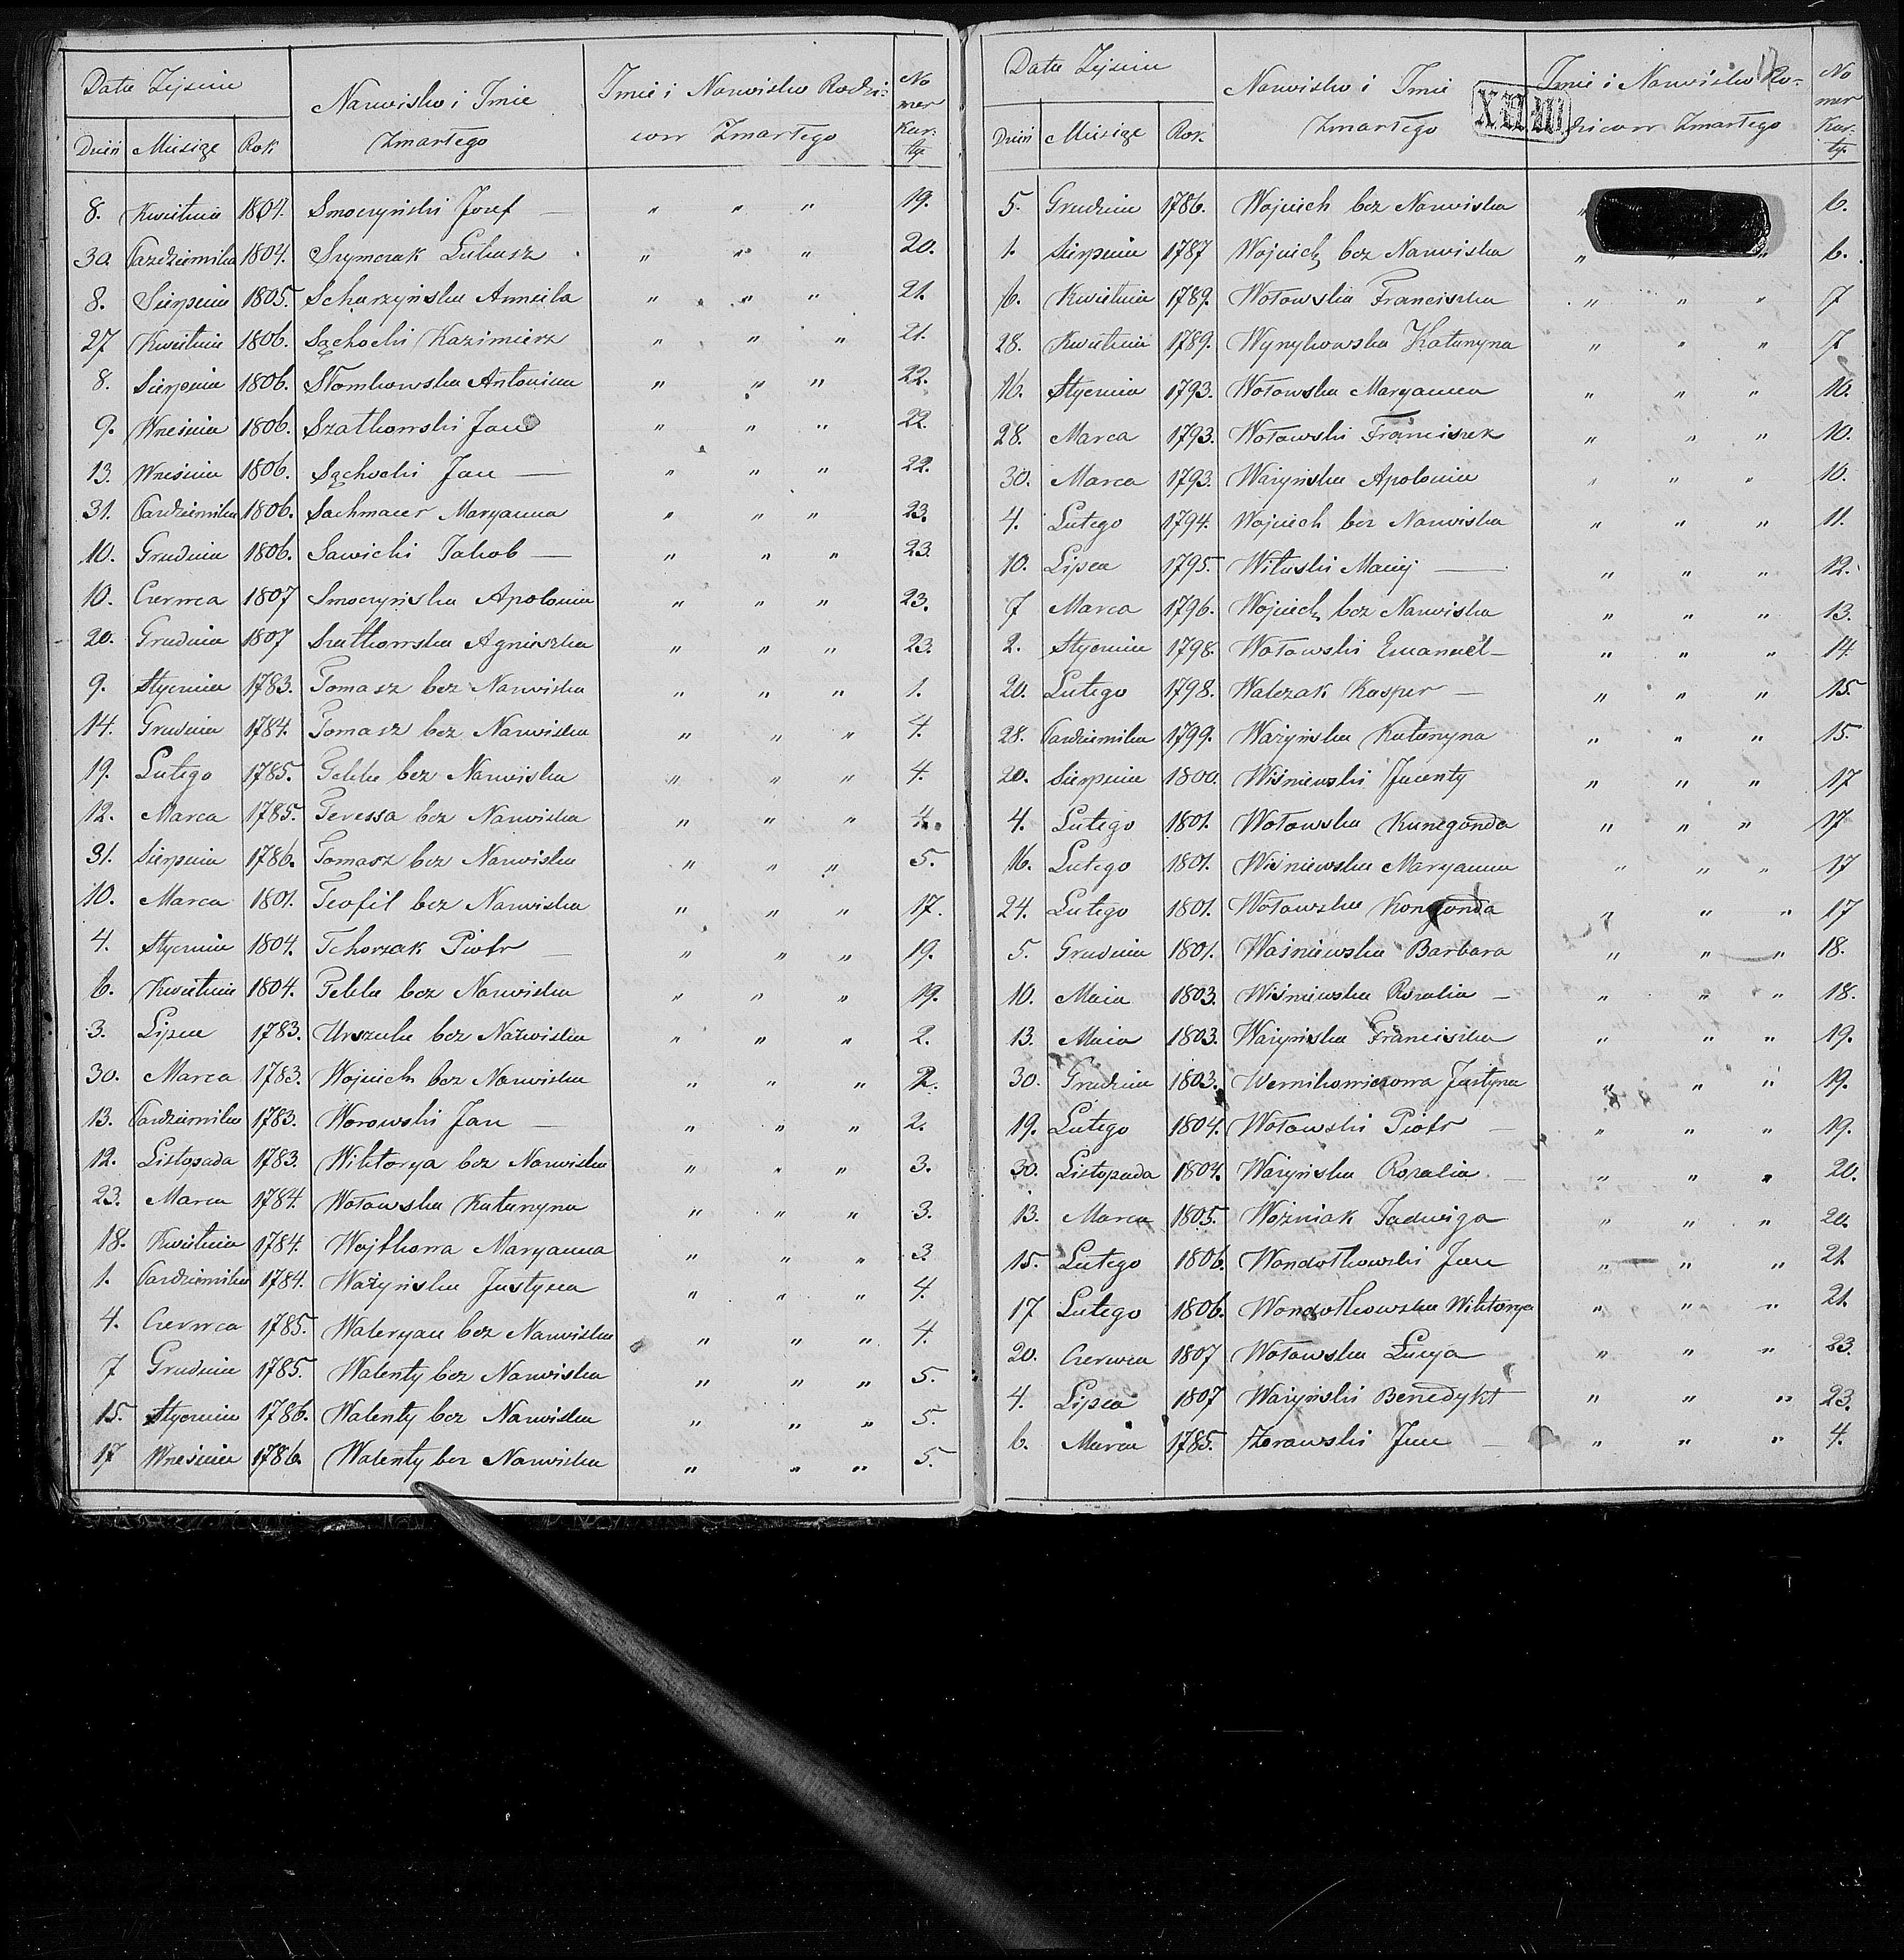 Data Zejscia
Nazwisko i Imie
Zmarłego
Imie i Nazwisko Rodzi-
cow Zmarłego
No
mer
Kar-
ty
Dzień Miesiąc Rok
8. Kwietnia 1804. Smoczyński Josef — " " " 19.
30. Pazdziernika 1804. Szymczak Łukasz " " " 20.
8. Sierpnia 1805. Scharzyńska Anneila " " " 21.
27 Kwietnia 1806. Sąchocki Kazimierz " " " 21.
8. Sierpnia 1806. Słomkowska Antonina " " " 22.
9. Września 1806. Szatkowski Jan " " " 22.
13. Września 1806. Sąchocki Jan — " " " 22.
31. Pazdziernika 1806. Sachmacer Maryanna " " " 23.
10. Grudnia 1806. Sawicki Jakob — " " " 23.
10. Czerwca 1807 Smoczyńska Apolonia " " " 23.
20. Grudnia 1807 Szatkowska Agnieszka " " " 23.
9. Stycznia 1783. Tomasz bez Nazwiska " " " 1.
14. Grudnia 1784. Tomasz bez Nazwiska " " " 4.
19. Lutego 1785. Tekla bez Nazwiska " " " 4.
12. Marca 1785. Teressa bez Nazwiska " " " 4.
31. Sierpnia 1786. Tomasz bez Nazwiska " " " 5.
10. Marca 1801. Teofil bez Nazwiska " " " 17.
4. Stycznia 1804. Tchorzak Piotr — " " " 19.
6. Kwietnia 1804. Tekla bez Nazwiska " " " 19.
3. Lipca 1783. Urszula bez Nazwiska " " " 2.
30. Marca 1783. Wojciech bez Nazwiska " " " 2.
13. Pazdziernika 1783. Worowski Jan — " " " 2.
12. Listopada 1783. Wiktorya bez Nazwiska " " " 3.
23. Marca 1784. Wołowska Katarzyna " " " 3.
18. Kwietnia 1784. Wojtkowa Maryanna " " " 3
1. Pazdziernika 1784. Ważyńska Justyna " " " 4.
4. Czerwca 1785. Waleryan bez Nazwiska " " " 4.
7 Grudnia 1785. Walenty bez Nazwiska " " " 5.
15. Stycznia 1786. Walenty bez Nazwiska " " " 5.
17 Września 1786. Walenty bez Nazwiska " " " 5.
Data Zejscia
Nazwisko i Imie
Zmarłego
Imie i Nazwisko Ro-
dzicow Zmarłego
No
mer
Kar-
ty.
Dzień Miesiąc Rok.
5. Grudnia 1786. Wojciech bez Nazwiska " 6.
1. Sierpnia 1787 Wojciech bez Nazwiska " " " 6.
6. Kwietnia 1789. Wołowska Franciszka " " " 7
28. Kwietnia 1789. Wynykowska Katarzyna " " " 7
16. Stycznia 1793. Wołowska Maryanna " " " 10.
28. Marca 1793. Wołowski Franciszek " " " 10.
30. Marca 1793. Ważyńska Apolonia " " " 10.
4. Lutego 1794. Wojciech bez Nazwiska " " " 11.
10. Lipca 1795. Wituski Maciej — " " " 12.
7 Marca 1796. Wojciech bez Nazwiska " " " 13.
2. Stycznia 1798. Wołowski Emanuel — " " " 14.
20. Lutego 1798. Walczak Kasper — " " " 15.
28. Pazdziernika 1799. Ważyńska Katarzyna " " " 15.
20. Sierpnia 1800. Wiśniewski Jacenty " " " 17
4. Lutego 1801. Wołowska Kunegonda " " " 17
16. Lutego 1801. Wiśniewska Maryanna " " " 17
24. Lutego 1801. Wołowska Kongonda " " " 17
5. Grudnia 1801. Waśniewska Barbara " " " 18.
10. Maia 1803. Wiśniewska Rozalia — " " " 18.
13. Maia 1803. Ważyńska Franciszka " " " 19.
30. Grudnia 1803. Wernikowiczowa Justyna " " " 19.
19. Lutego 1804. Wołowski Piotr — " " " 19.
30. Listopada 1804. Ważyńska Rozalia — " " " 20.
13. Marca 1805. Woźniak Jadwiga " " " 20.
15. Lutego 1806. Wondołkowski Jan " " " 21.
17 Lutego 1806. Wondołkowska Wiktorya " " " 21.
20. Czerwca 1807 Wołowska Łucya " " " 23.
4. Lipca 1807 Ważyński Benedykt " " " 23.
6. Marca 1785. Zorawski Jan — " " " 4.